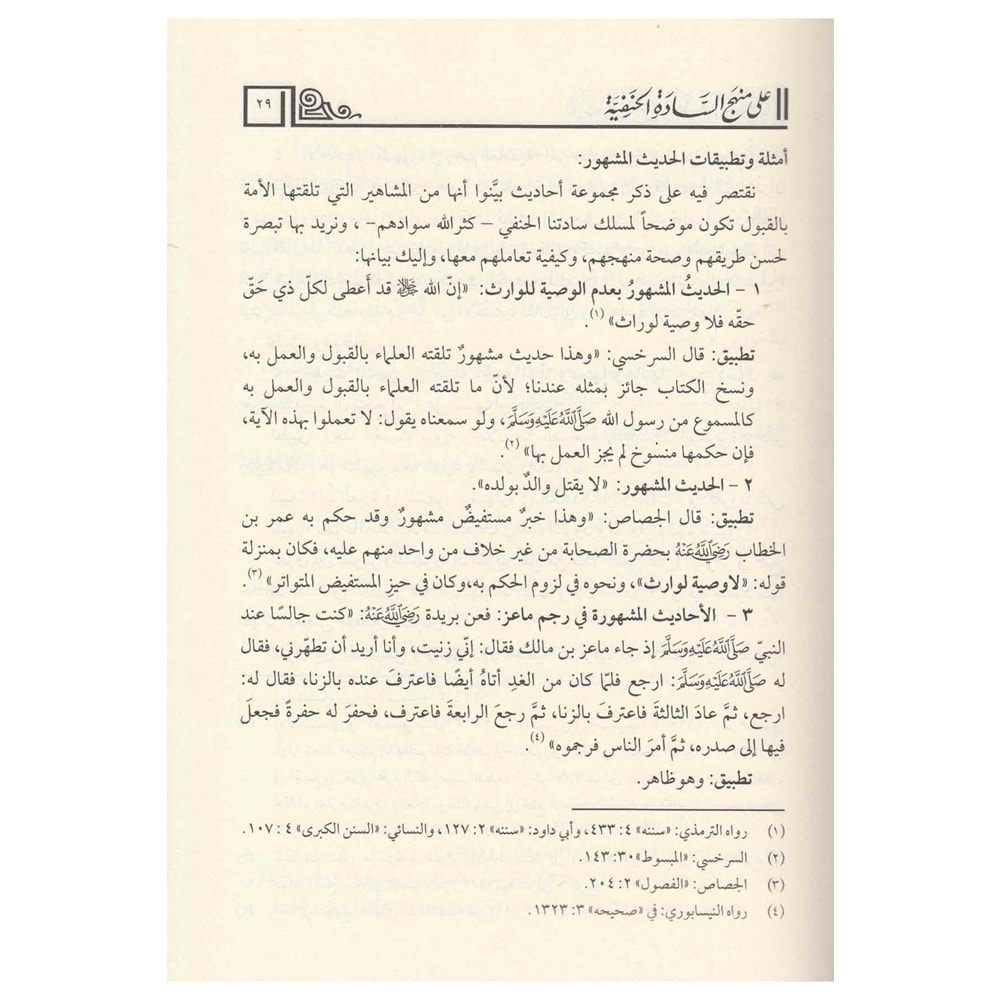 على منهج السَّادَةِ الحَنَفِيَّة
٢٩
أمثلة وتطبيقات الحديث المشهور:
نقتصر فيه على ذكر مجموعة أحاديث بيَّنوا أنها من المشاهير التي تلقتها الأمة
بالقبول تكون موضحاً لمسلك سادتنا الحنفي – كثر الله سوادهم- ، ونريد بها تبصرة
لحسن طريقهم وصحة منهجهم، وكيفية تعاملهم معها، وإليك بيانها:
١ – الحديثُ المشهورُ بعدم الوصية للوارث: «إنّ الله ﷻ قد أَعطى لكلّ ذي حَقّ
حقّه فلا وصية لوراث» (١).
تطبيق: قال السرخسي: «وهذا حديث مشهورٌ تلقته العلماء بالقبول والعمل به،
ونسخ الكتاب جائز بمثله عندنا؛ لأنّ ما تلقته العلماء بالقبول والعمل به
كالمسموع من رسول الله صَلَّى اللَّهُ عَلَيْهِ وَسَلَّمَ، ولو سمعناه يقول: لا تعملوا بهذه الآية،
فإن حكمها منسوخ لم يجز العمل بها» (٢).
٢ – الحديث المشهور: «لا يقتل والدٌ بولده».
تطبيق: قال الجصاص: «وهذا خبرٌ مستفيضٌ مشهورٌ وقد حكم به عمر بن
الخطاب رَضِيَ اللَّهُ عَنْهُ بحضرة الصحابة من غير خلاف من واحد منهم عليه، فكان بمنزلة
قوله: «لا وصية لوارث»، ونحوه في لزوم الحكم به،وكان في حيز المستفيض المتواتر» (٣).
٣ – الأحاديث المشهورة في رجم ماعز: فعن بريدة رَضِيَ اللَّهُ عَنْهُ: «كنت جالسًا عند
النبيّ صَلَّى اللَّهُ عَلَيْهِ وَسَلَّمَ إذ جاء ماعز بن مالك فقال: إنّي زنيت، وأنا أريد أن تطهّرني، فقال
له صَلَّى اللَّهُ عَلَيْهِ وَسَلَّمَ: ارجع فلمّا كان من الغدِ أتاهُ أيضًا فاعترفَ عنده بالزنا، فقال له:
ارجع، ثمَّ عادَ الثالثةَ فاعترفَ بالزنا، ثمَّ رجعَ الرابعةَ فاعترف، فحفرَ له حفرةً فجعلَ
فيها إلى صدره، ثمَّ أمرَ الناس فرجموه» (٤).
تطبيق: وهو ظاهر.
(١) رواه الترمذي: «سننه» ٤: ٤٣٣، وأبي داود: «سننه» ٢: ١٢٧، والنسائي: «السنن الكبرى» ٤: ١٠٧.
(٢) السرخسي: «المبسوط» ٣٠: ١٤٣.
(٣) الجصاص: «الفصول» ٢: ٢٠٤.
(٤) رواه النيسابوري: في «صحيحه» ٣: ١٣٢٣.